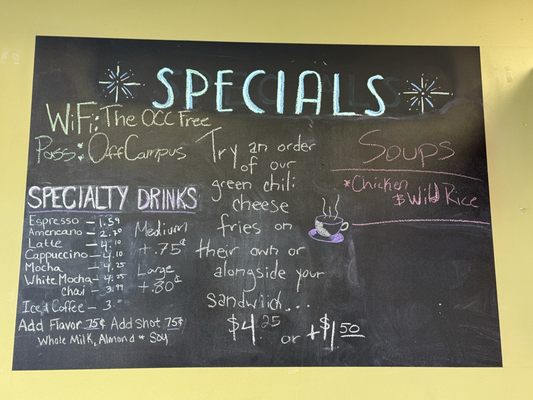 SPECIALS
WiFi: The OCC Free
Pass: OffCampus
SPECIALTY DRINKS
Espresso – 1.59
Americano – 2.20
Latte – 4.10
Cappuccino – 4.10
Mocha – 4.25
White Mocha – 4.25
Chai – 3.99
Iced Coffee – 3.
Medium
+.75¢
Large
+.80¢
Add Flavor 75¢ Add Shot 75¢
Whole Milk, Almond + Soy
Try an order
of our
green chili
cheese
fries on
their own or
alongside your
Sandwich...
$4.25 or +$1.50
Soups
*Chicken
& Wild Rice